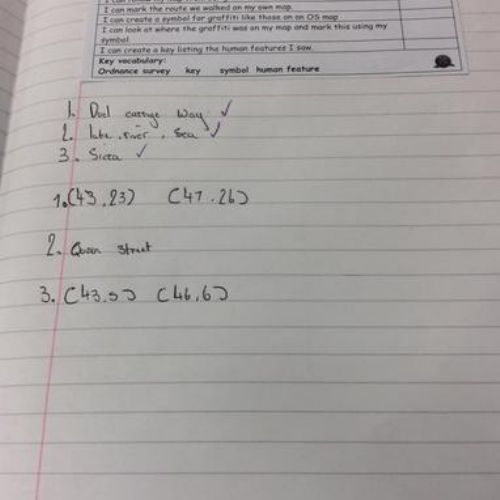 I can mark the route we walked on my own map.
I can create a symbol for graffiti like those on an OS map
I can look at where the graffiti was on my map and mark this using my
symbol.
I can create a key listing the human features I saw.
Key vocabulary:
Ordnance survey key symbol human feature
1. Dual carrage Way
2. lake, river, Sea
3.
1. (43,23) (47,26)
2. Queen Street
3. (43,5) (46,6)